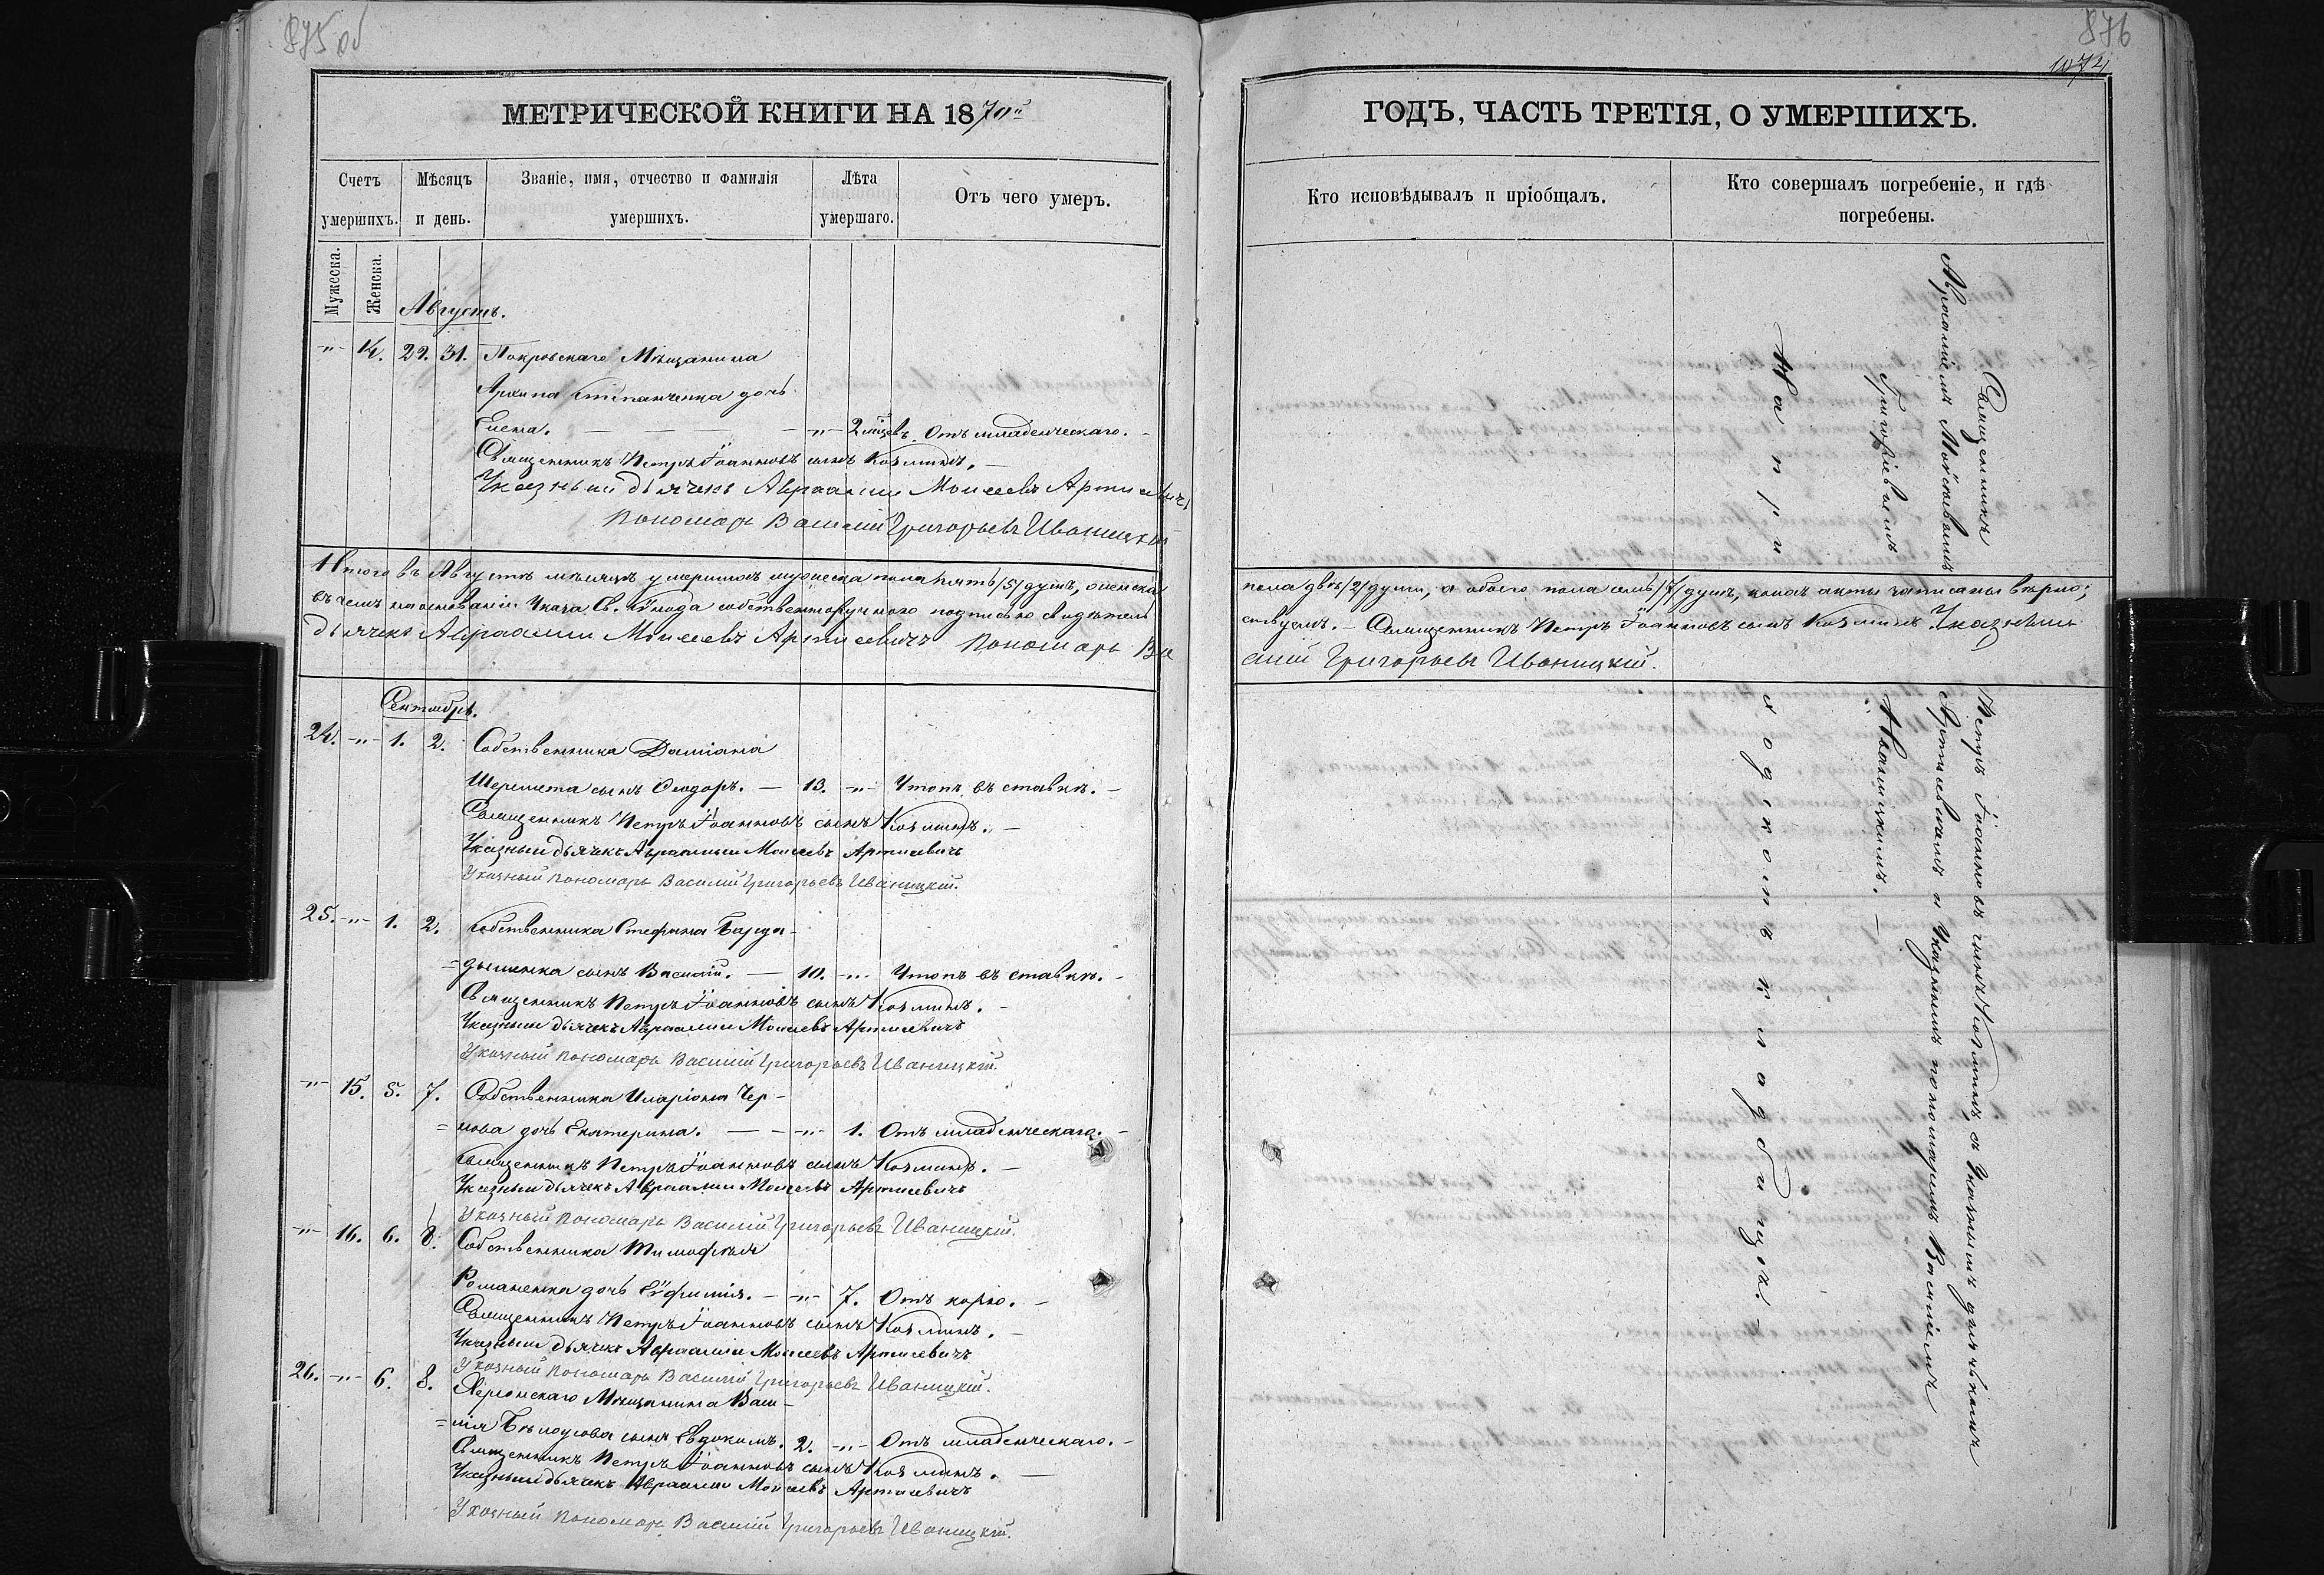 875 об
МЕТРИЧЕСКОЙ КНИГИ НА 1870й
Счетъ умершихъ.
Мѣсяцъ и день.
Званіе, имя, отчество и фамилія умершихъ.
Лѣта умершаго.
Отъ чего умеръ.
Мужеска.
Женска.
Августъ.
-"- 14. 29. 31. Покровскаго Мѣщанина
Архипа Степанченка дочь
Елена. — -"- 2 мѣсцевъ. Отъ младенческаго. -
Священникъ Петръ Іоанновъ сынъ Козминъ. —
Указный дьячекъ Авраамій Моисеевъ Артисевичъ
Пономарь Василій Григорьевъ Иваницкій
Итого въ Августѣ мѣсяцѣ умершихъ мужеска пола пять /5/ душъ, женска
въ чемъ на основаніи Указа Св. Сѵнода собственноручною подписью свидѣтель
дьячекъ Авраамій Моисеевъ Артисевичъ Пономарь Ва
Сентябрь.
24. -"- 1. 2. Собственника Даміана
Шеремета сынъ Ѳеодоръ. — 13. -"- Утопъ въ ставкѣ. -
Священникъ Петръ Іоанновъ сынъ Козминъ. —
Указный дьячекъ Авраамій Моисеевъ Артисевичъ
Указный пономарь Василій Григорьевъ Иваницкій.
25. -"- 1. 2. Собственника Стефана Барда-
=дыменка сынъ Василій. — 10. -"- Утопъ въ ставкѣ. -
Священникъ Петръ Іоанновъ сынъ Козминъ. -
Указный дьячекъ Авраамій Моисеевъ Артисевичъ
Указный пономарь Василій Григорьевъ Иваницкій.
-"- 15. 5. 7. Собственника Иларіона Чер-
=нова дочь Екатерина. — -"- 1. Отъ младенческаго. -
Священникъ Петръ Іоанновъ сынъ Козминъ. —
Указный дьячекъ Авраамій Моисеевъ Артисевичъ
Указный пономарь Василій Григорьевъ Иваницкій.
-"- 16. 6. 8. Собственника Тимофея
Романенка дочь Евфимія. — -"- 7. Отъ корю. -
Священникъ Петръ Іоанновъ сынъ Козминъ. —
Указный дьячекъ Авраамій Моисеевъ Артисевичъ
Указный пономарь Василій Григорьевъ Иваницкій.
26. -"- 6. 8. Херсонскаго Мѣщанина Васи-
=лія Бѣлоусова сынъ Евдокимъ. 2. -"- Отъ младенческаго. -
Священникъ Петръ Іоанновъ сынъ Козминъ. —
Указный дьячекъ Авраамій Моисеевъ Артисевичъ
Указный пономарь Василій Григорьевъ Иваницкій.
876
1074
ГОДЪ, ЧАСТЬ ТРЕТІЯ, О УМЕРШИХЪ.
Кто исповѣдывалъ и пріобщалъ.
Кто совершалъ погребеніе, и гдѣ погребены.
Священникъ
Авраамiемъ Мойсѣевымъ
Григорiевымъ
На при
пола двѣ /2/ души, а обоего пола семь /7/ душъ, коихъ акты записаны вѣрно;
ствуемъ. — Священникъ Петръ Іоанновъ сынъ Козминъ. Указный
силій Григорьевъ Иваницкій.
Петръ Іоанновъ сынъ Козминъ, съ Указнымъ дьячкомъ
Артисевичемъ и Указнымъ пономаремъ Василіемъ
Иваницкимъ. —
ходскомъ кладбищѣ. -